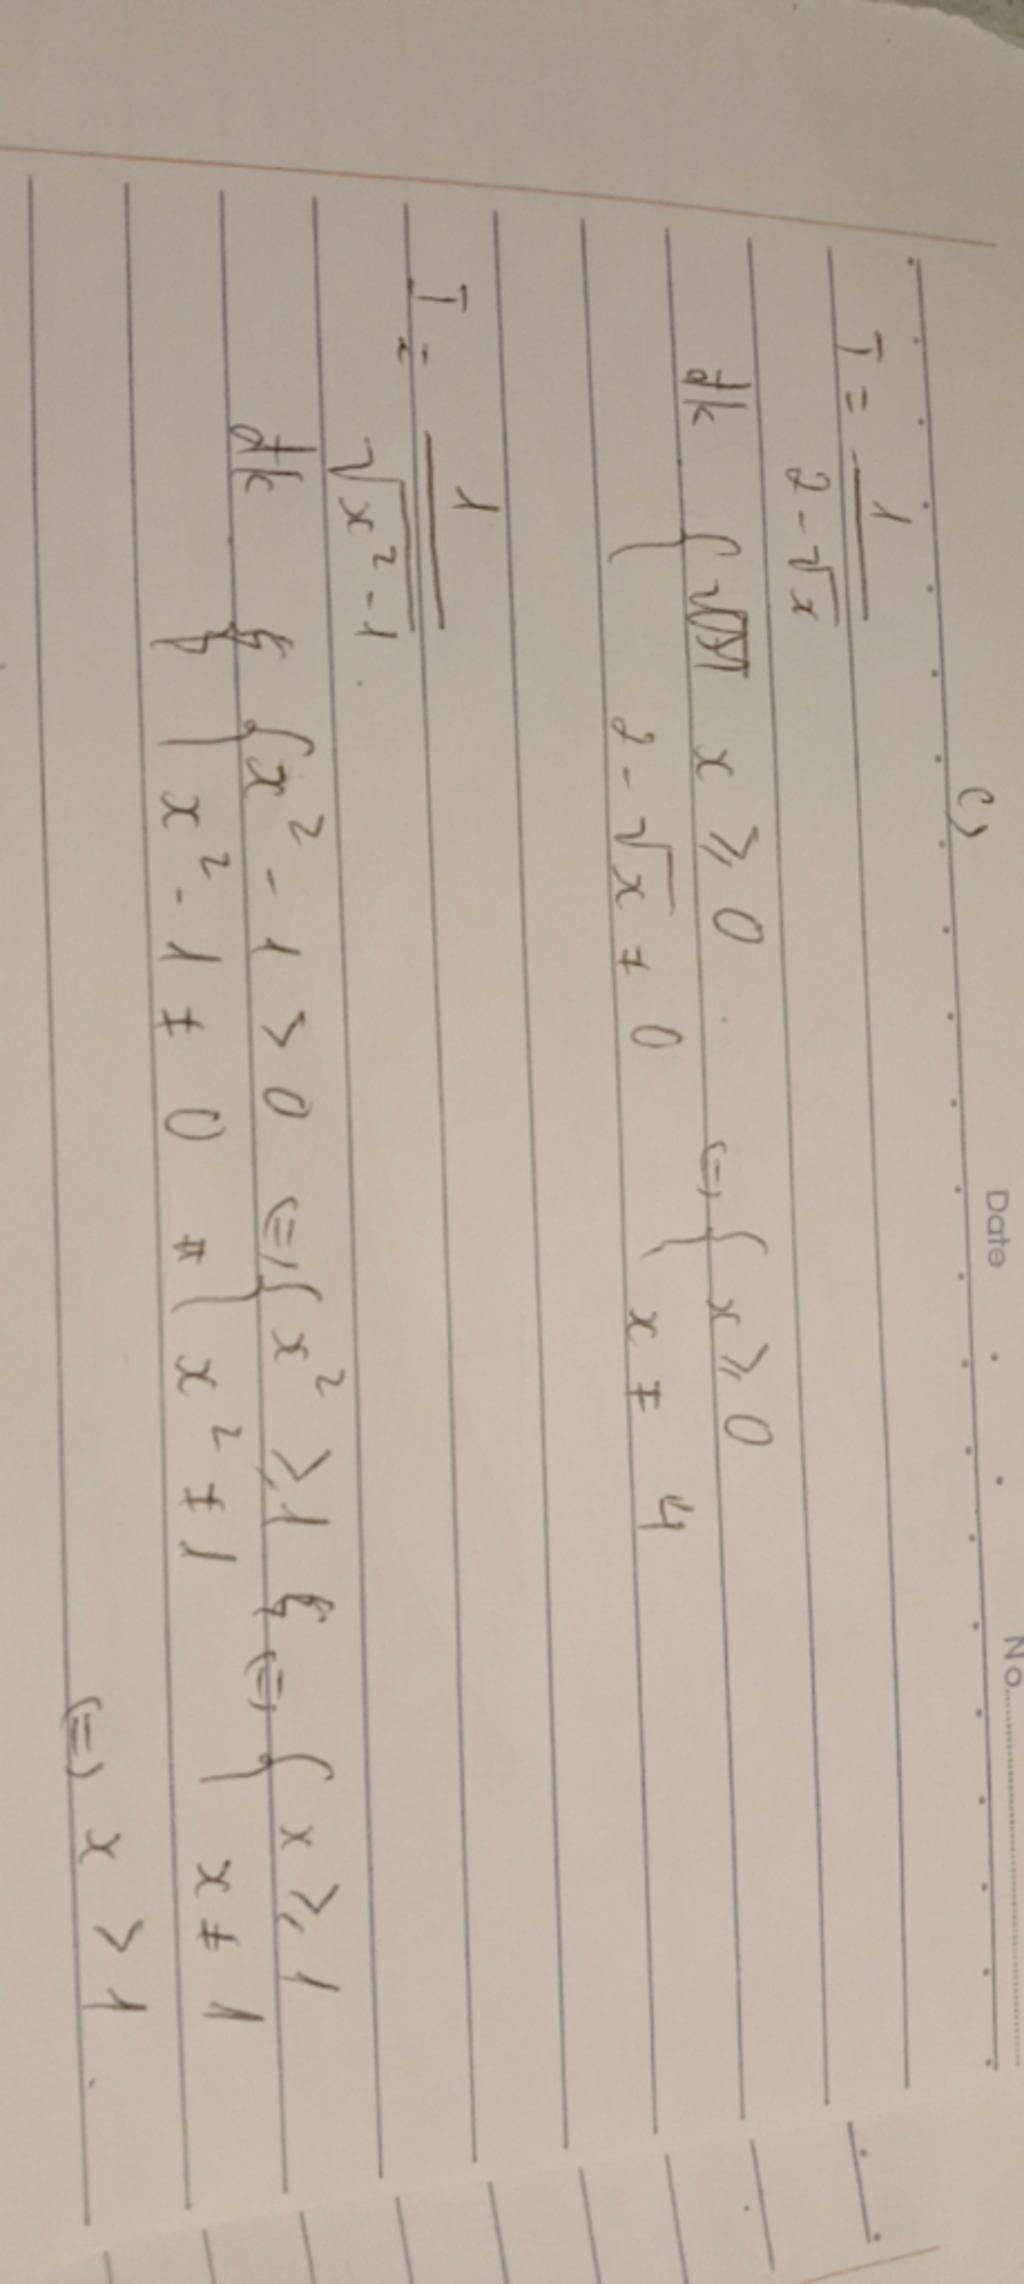 Date No.
c)
I = 1 / (2 - √x)
đk { x ≥ 0 (=) { x ≥ 0
2 - √x ≠ 0 x ≠ 4
I = 1 / √(x² - 1)
đk { x² - 1 > 0 (=) { x² ≥ 1 (=) { x ≥ 1
x² - 1 ≠ 0 x² ≠ 1 x ≠ 1
(=) x > 1